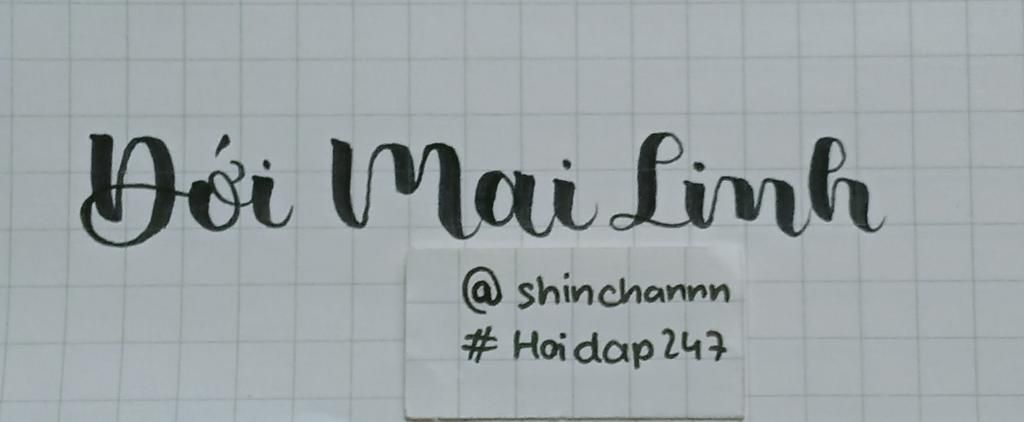 Đới Mai Linh
@ shinchannn
# Hoidap247